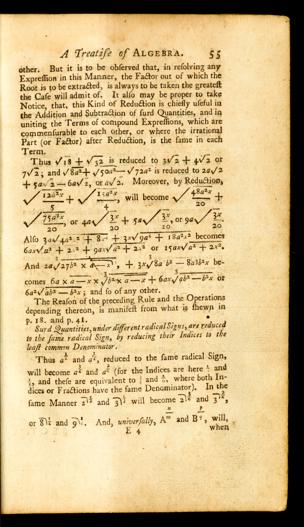 A Treatise of ALGEBRA. 55
other. But it is to be observed that, in resolving any
Expression in this Manner, the Factor out of which the
Root is to be extracted, is always to be taken the greatest
the Case will admit of. It also may be proper to take
Notice, that, this Kind of Reduction is chiefly useful in
the Addition and Subtraction of surd Quantities, and in
uniting the Terms of compound Expressions, which are
commensurable to each other, or where the irrational
Part (or Factor) after Reduction, is the same in each
Term.
Thus √18 + √32 is reduced to 3√2 + 4√2 or
7√2; and √8a² + √50a² − √72a² is reduced to 2a√2
+ 5a√2 − 6a√2, or a√2. Moreover, by Reduction,
√12a²x/5 + √15a²x/4, will become √48a²x/20 +
√75a²x/20, or 4a√3x/20 + 5a√3x/20, or 9a√3x/20.
becomes
6ax√a² + 2x² + 9ax√a² + 2x² or 15ax√a² + 2x².
And be-
comes or
; and so of any other.
The Reason of the preceding Rule and the Operations
depending thereon, is manifest from what is shewn in
p. 18. and p. 41.
Surd Quantities, under different radical Signs, are reduced
to the same radical Sign, by reducing their Indices to the
least common Denominator.
Thus and , reduced to the same radical Sign,
will become and (for the Indices are here and
, and these are equivalent to and , where both In-
dices or Fractions have the same Denominator). In the
same Manner and will become and ,
or and . And, universally, and , will,
E 4 when